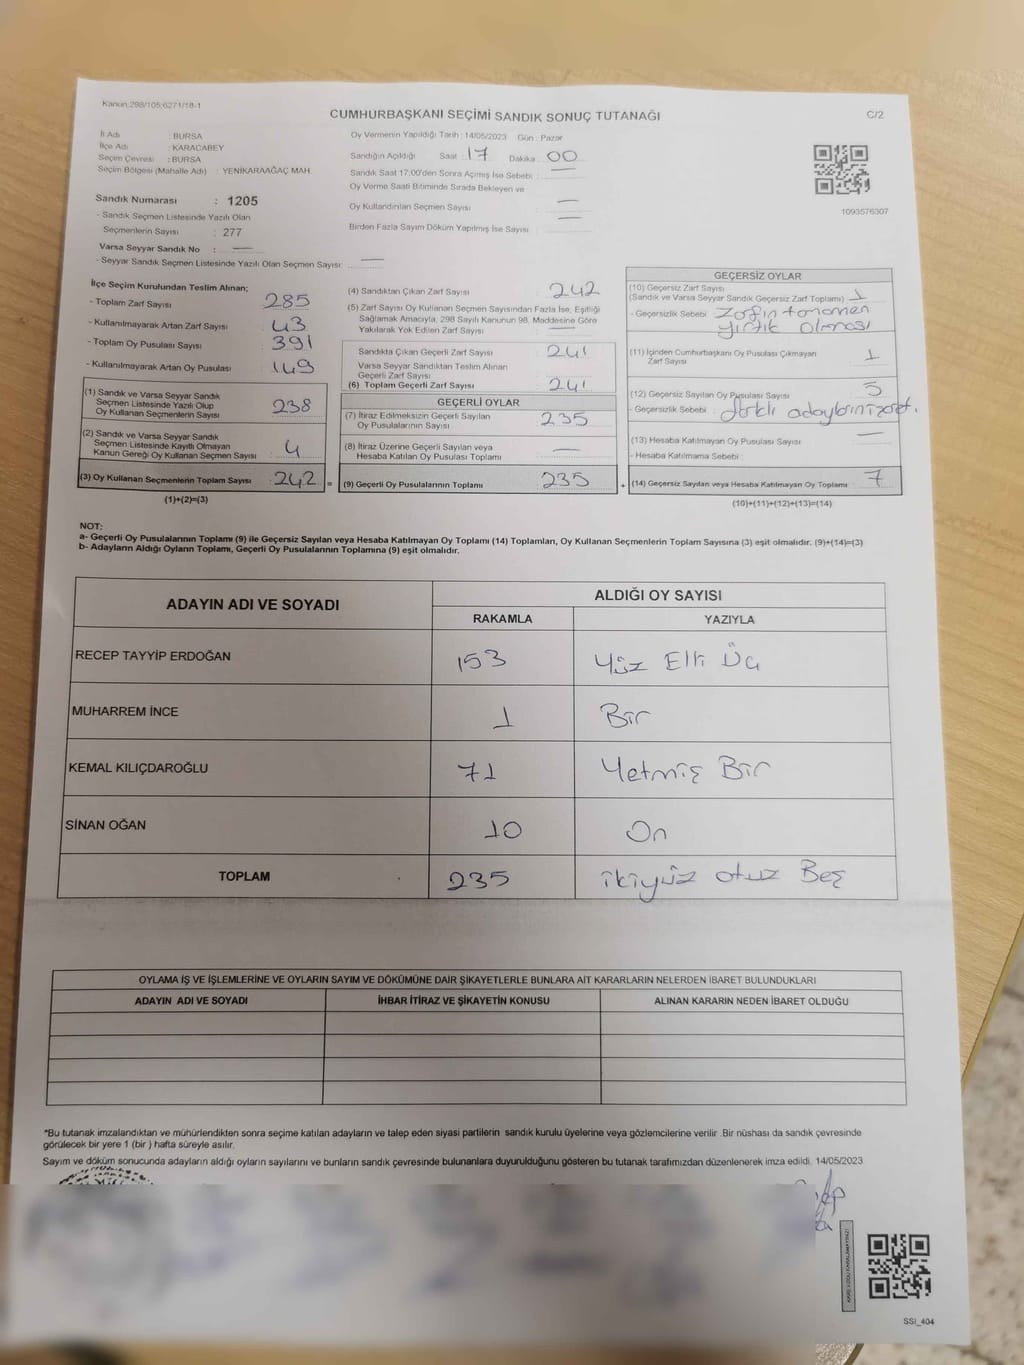 Kanun:298/105;6271/18-1
CUMHURBAŞKANI SEÇİMİ SANDIK SONUÇ TUTANAĞI
C/2
İl Adı : BURSA
İlçe Adı : KARACABEY
Seçim Çevresi : BURSA
Seçim Bölgesi (Mahalle Adı) : YENİKARAAĞAÇ MAH
Sandık Numarası : 1205
- Sandık Seçmen Listesinde Yazılı Olan
Seçmenlerin Sayısı : 277
Varsa Seyyar Sandık No : —
- Seyyar Sandık Seçmen Listesinde Yazılı Olan Seçmen Sayısı: —
Oy Vermenin Yapıldığı Tarih : 14/05/2023 Gün : Pazar
Sandığın Açıldığı Saat : 17 Dakika : 00
Sandık Saat 17:00'den Sonra Açımış İse Sebebi : —
Oy Verme Saati Bitiminde Sırada Bekleyen ve
Oy Kullandırılan Seçmen Sayısı —
Birden Fazla Sayım Döküm Yapılmış İse Sayısı : —
1093576307
İlçe Seçim Kurulundan Teslim Alınan;
- Toplam Zarf Sayısı 285
- Kullanılmayarak Artan Zarf Sayısı : 43
- Toplam Oy Pusulası Sayısı : 391
- Kullanılmayarak Artan Oy Pusulası : 149
(1) Sandık ve Varsa Seyyar Sandık
Seçmen Listesinde Yazılı Olup
Oy Kullanan Seçmenlerin Sayısı : 238
(2) Sandık ve Varsa Seyyar Sandık
Seçmen Listesinde Kayıtlı Olmayan
Kanun Gereği Oy Kullanan Seçmen Sayısı : 4
(3) Oy Kullanan Seçmenlerin Toplam Sayısı : 242 =
(1)+(2)=(3)
(4) Sandıktan Çıkan Zarf Sayısı : 242
(5) Zarf Sayısı Oy Kullanan Seçmen Sayısından Fazla İse, Eşitliği
Sağlamak Amacıyla, 298 Sayılı Kanunun 98. Maddesine Göre
Yakılarak Yok Edilen Zarf Sayısı : —
Sandıkta Çıkan Geçerli Zarf Sayısı : 241
Varsa Seyyar Sandıktan Teslim Alınan
Geçerli Zarf Sayısı :
(6) Toplam Geçerli Zarf Sayısı : 241
GEÇERLİ OYLAR
(7) İtiraz Edilmeksizin Geçerli Sayılan
Oy Pusulalarının Sayısı : 235
(8) İtiraz Üzerine Geçerli Sayılan veya
Hesaba Katılan Oy Pusulası Toplamı : —
(9) Geçerli Oy Pusulalarının Toplamı : 235 +
GEÇERSİZ OYLAR
(10) Geçersiz Zarf Sayısı
(Sandık ve Varsa Seyyar Sandık Geçersiz Zarf Toplamı) : 1
- Geçersizlik Sebebi : Zarfın tamamen
yırtık olması
(11) İçinden Cumhurbaşkanı Oy Pusulası Çıkmayan
Zarf Sayısı : 1
(12) Geçersiz Sayılan Oy Pusulası Sayısı : 5
- Geçersizlik Sebebi :
(13) Hesaba Katılmayan Oy Pusulası Sayısı : —
- Hesaba Katılmama Sebebi :
(14) Geçersiz Sayılan veya Hesaba Katılmayan Oy Toplamı : 7
(10)+(11)+(12)+(13)=(14)
NOT:
a- Geçerli Oy Pusulalarının Toplamı (9) ile Geçersiz Sayılan veya Hesaba Katılmayan Oy Toplamı (14) Toplamları, Oy Kullanan Seçmenlerin Toplam Sayısına (3) eşit olmalıdır. (9)+(14)=(3)
b- Adayların Aldığı Oyların Toplamı, Geçerli Oy Pusulalarının Toplamına (9) eşit olmalıdır.
ADAYIN ADI VE SOYADI
ALDIĞI OY SAYISI
RAKAMLA YAZIYLA
RECEP TAYYİP ERDOĞAN 153 Yüz Elli Üç
MUHARREM İNCE 1 Bir
KEMAL KILIÇDAROĞLU 71 Yetmiş Bir
SİNAN OĞAN 10 On
TOPLAM 235 ikiyüz otuz Beş
OYLAMA İŞ VE İŞLEMLERİNE VE OYLARIN SAYIM VE DÖKÜMÜNE DAİR ŞİKAYETLERLE BUNLARA AİT KARARLARIN NELERDEN İBARET BULUNDUKLARI
ADAYIN ADI VE SOYADI İHBAR İTİRAZ VE ŞİKAYETİN KONUSU ALINAN KARARIN NEDEN İBARET OLDUĞU
*Bu tutanak imzalandıktan ve mühürlendikten sonra seçime katılan adayların ve talep eden siyasi partilerin sandık kurulu üyelerine veya gözlemcilerine verilir .Bir nüshası da sandık çevresinde
görülecek bir yere 1 (bir ) hafta süreyle asılır.
Sayım ve döküm sonucunda adayların aldığı oyların sayılarını ve bunların sandık çevresinde bulunanlara duyurulduğunu gösteren bu tutanak tarafımızdan düzenlenerek imza edildi. 14/05/2023
SSI_404